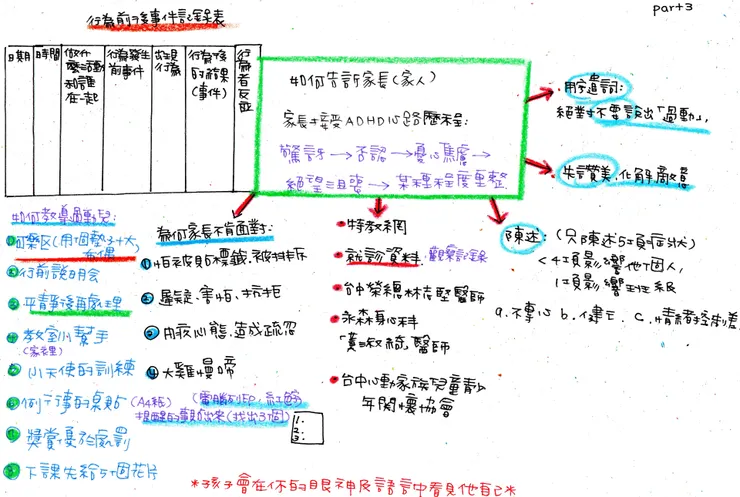 part3
行為前後事件記錄表
日期
時間
做什
麼活動
和誰
在一起
行為發生
前事件
出現
行為
行為後
的結果
(事件)
行為者反應
如何告訴家長(家人)
家長接受ADHD心路歷程:
驚訝→否認→憂心焦慮→
絕望沮喪→某種程度重整
用字遣詞:
絕對不要說出「過動」,
先讚美,化解敵意
陳述:(只陳述5項負症狀)
<4項影響他個人,
1項影響班級
a.不專心 b.健忘 c.情緒控制差
如何教導過動兒:
(用個墊子+大
布偶
②行前說明會
③平靜後再處理
④教室小幫手
(家裡)
⑤小天使的訓練
⑥例行事的桌貼(A4紙)(電腦列印,紅
提醒的事貼出來(找出3個)
1.
2.
3.
⑦獎賞優於處罰
⑧下課先給5個花片
為何家長不肯面對:
①怕被貼標籤,被排斥
②遲疑、害怕、抗拒
③ 心態,造成疏忽
④大雞慢啼
特教網
就診資料,觀察記錄
台中榮總林志堅醫師
永森身心科
「黃敏綺」醫師
台中心動家族兒童青少
年關懷協會
*孩子會在你的眼神及語言中看見他自己*